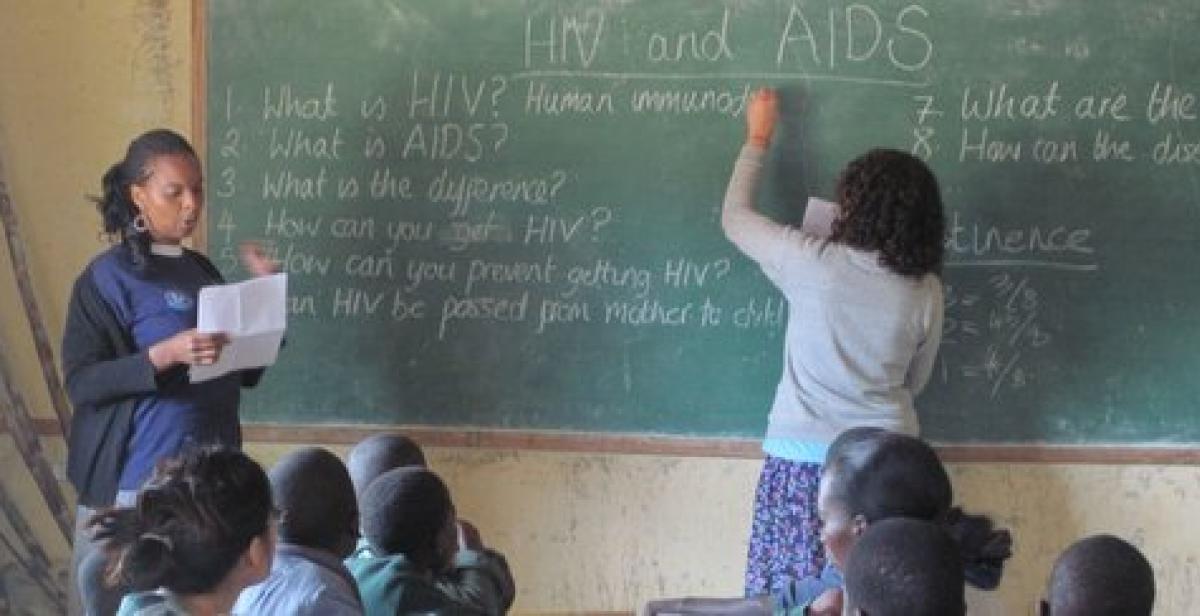 HIV and AIDS
1. What is HIV? Human immunod
2. What is AIDS?
3 What is the difference?
4 How can you get HIV?
5. How can you prevent getting HIV?
an HIV be passed from mother to child
7 What are the
8. How can the dise
tinence